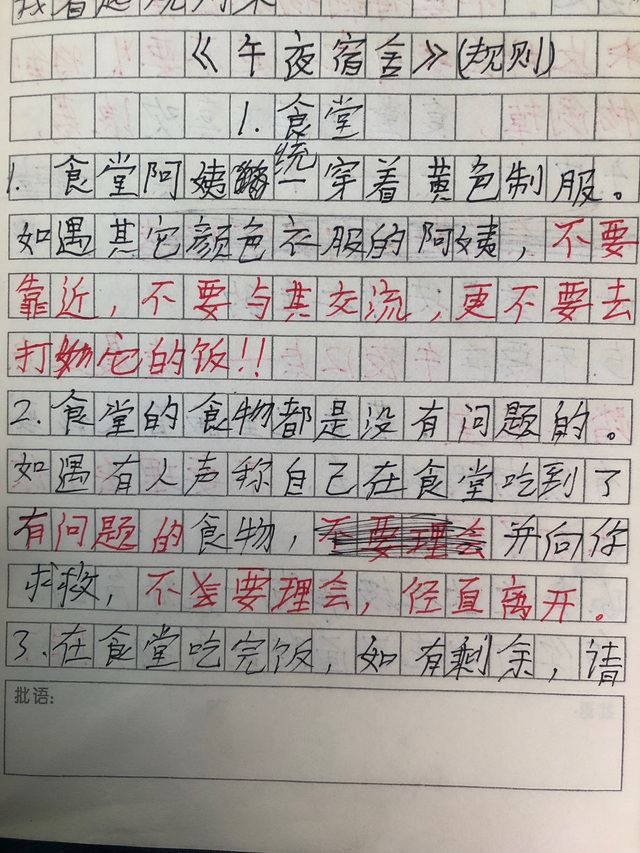 我看起规则来
《午夜宿舍》(规则)
1.食堂
1.食堂阿姨统一穿着黄色制服。
如遇其它颜色衣服的阿姨,不要
靠近,不要与其交流,更不要去
打它的饭!!
2.食堂的食物都是没有问题的。
如遇有人声称自己在食堂吃到了
有问题的食物,不要理会并向你
求救,不要理会,径直离开。
3.在食堂吃完饭,如有剩余,请
批语: